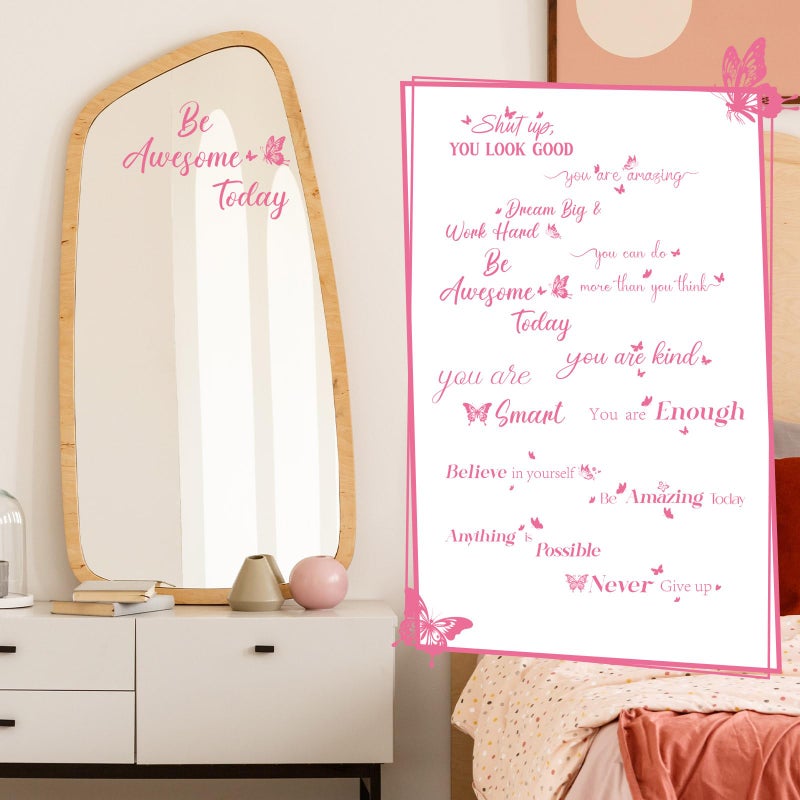 Be
Awesome
Today
Shut up,
YOU LOOK GOOD
you are amazing
Dream Big &
Work Hard
you can do
more than you think
Be
Awesome
Today
you are kind
you are
Smart
You are Enough
Believe in yourself
Be Amazing Today
Anything is
Possible
Never Give up